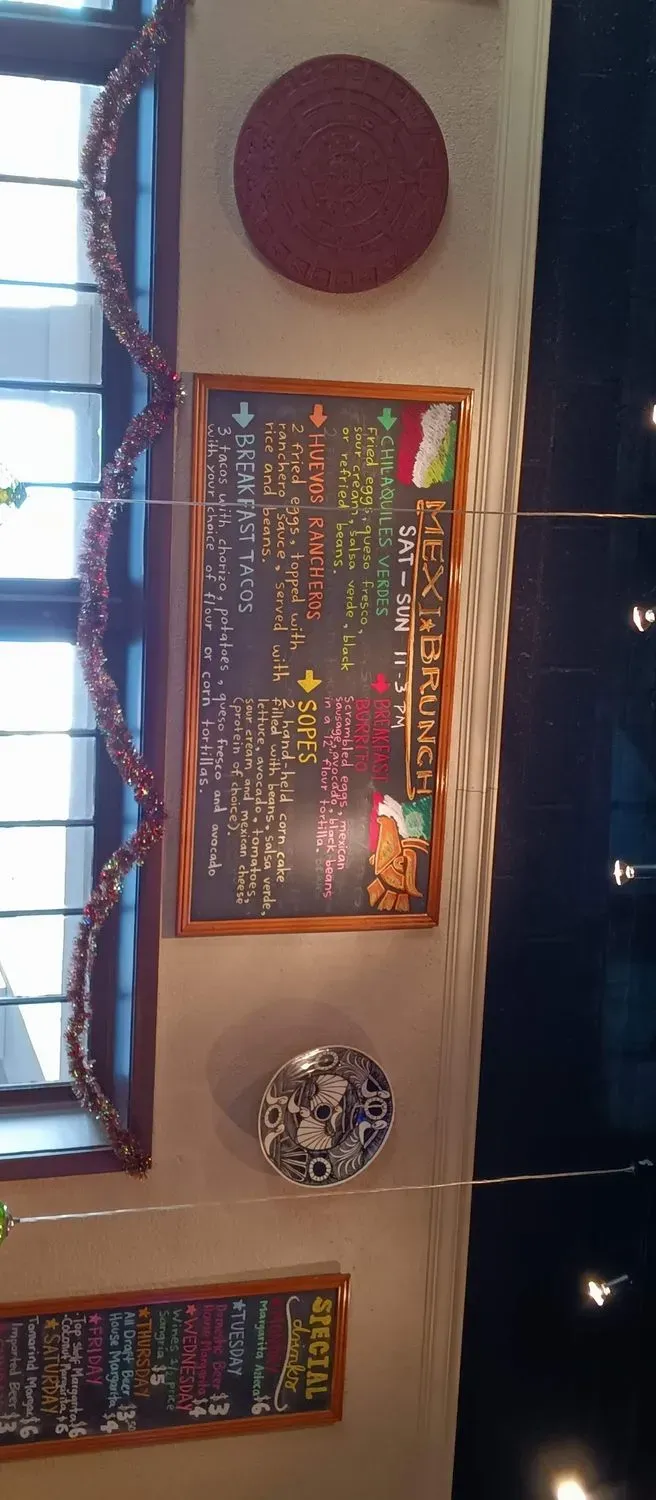 MEXI★BRUNCH
SAT - SUN 11-3 PM
CHILAQUILES VERDES
Fried eggs, queso fresco,
sour cream, salsa verde, black
or refried beans.
HUEVOS RANCHEROS
2 fried eggs, topped with
ranchero sauce, served with
rice and beans.
BREAKFAST TACOS
3 tacos with chorizo, potatoes, queso fresco and avocado
with your choice of flour or corn tortillas.
BREAKFAST
BURRITO
Scrambled eggs, mexican
sausage, avocado, black beans
in a 12" flour tortilla.
SOPES
2 hand-held corn cake
filled with beans, salsa verde,
lettuce, avocado, tomatoes,
sour cream and mexican cheese
(protein of choice).
SPECIAL
drinks
Margarita Azteca $6
★TUESDAY
Domestic Beer $3
House Margarita $4
★WEDNESDAY
Wines 1/2 price
Sangria $5
★THURSDAY
All Draft Beer $3.50
House Margarita $4
★FRIDAY
Top Shelf Margarita $6
Coconut Margarita $6
★SATURDAY
Tamarind Margarita $6
Imported Beer $3